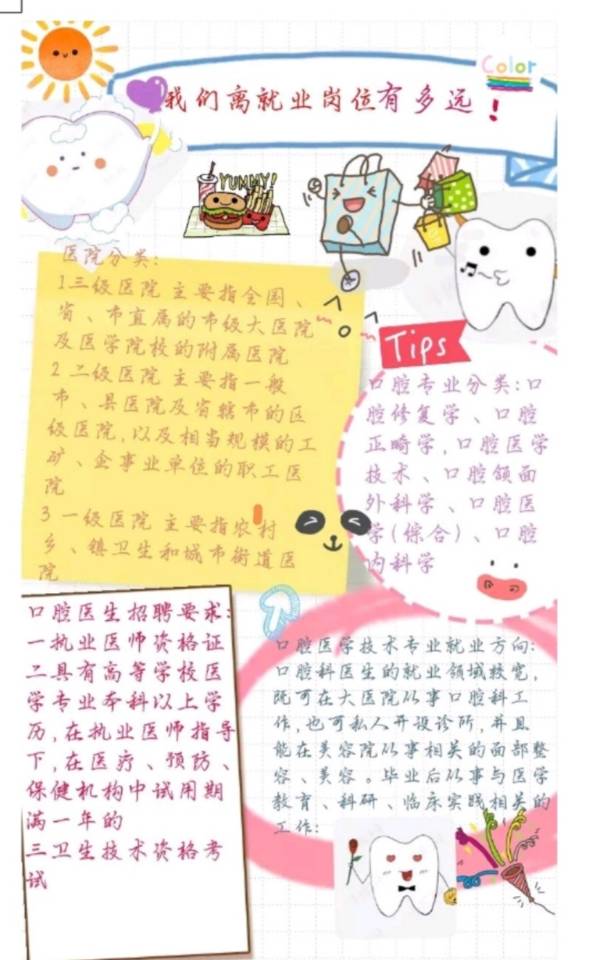 Color
我们离就业岗位有多远！
YUMMY!
医院分类：
1三级医院 主要指全国、
省、市直属的市级大医院
及医学院校的附属医院
2 二级医院 主要指一般
市、县医院及省辖市的区
级医院,以及相当规模的工
矿、企事业单位的职工医
院
3 一级医院 主要指农村
乡、镇卫生和城市街道医
院
Tips
口腔专业分类:口
腔修复学、口腔
正畸学,口腔医学
技术、口腔颌面
外科学、口腔医
学(综合)、口腔
内科学
口腔医生招聘要求:
一执业医师资格证
二具有高等学校医
学专业本科以上学
历,在执业医师指导
下,在医疗、预防、
保健机构中试用期
满一年的
三卫生技术资格考
试
口腔医学技术专业就业方向:
口腔科医生的就业领域较宽,
既可在大医院从事口腔科工
作,也可私人开设诊所,并且
能在美容院从事相关的面部整
容、美容。毕业后从事与医学
教育、科研、临床实践相关的
工作: